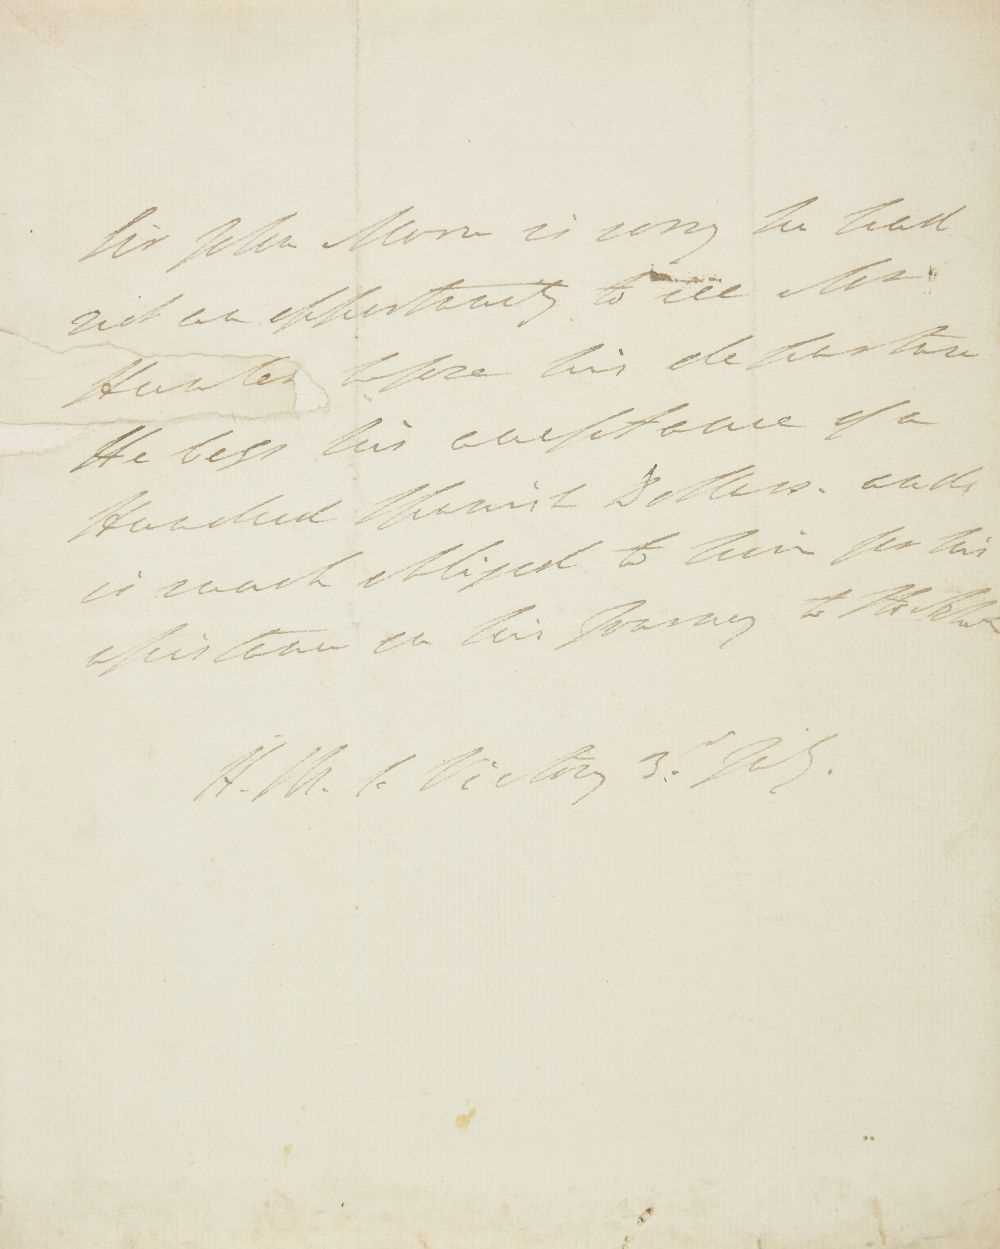 Sir John Moore is sorry he had
not an opportunity to see Mr
Hunter before his departure
He begs his acceptance of a
Hundred Spanish Dollars. and
is much obliged to him for his
assistance on his Journey to Stockholm
H. M. S. Victory 3d July.